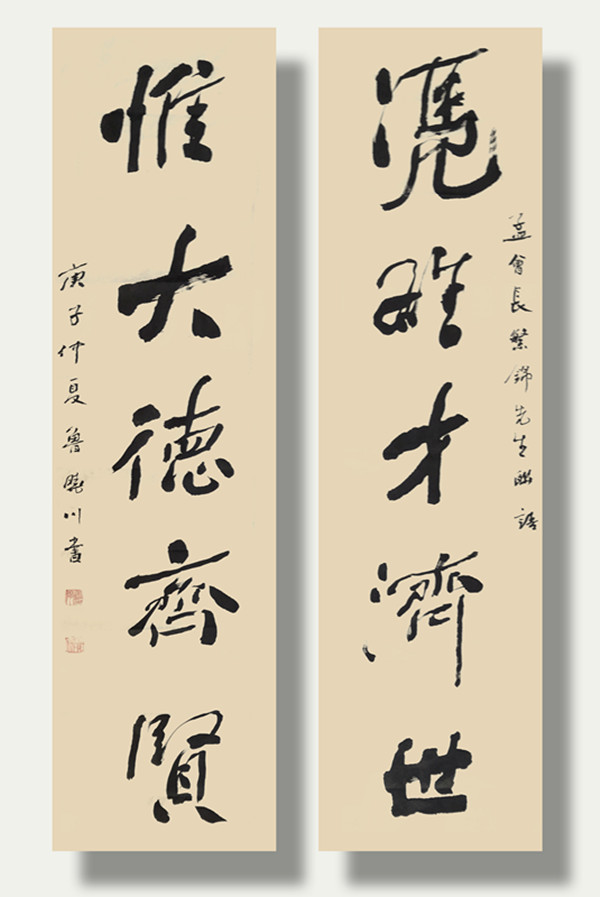 孟會長繁錦先生聯語
凴雄才濟世
惟大德齊賢
庚子仲夏魯曉川書